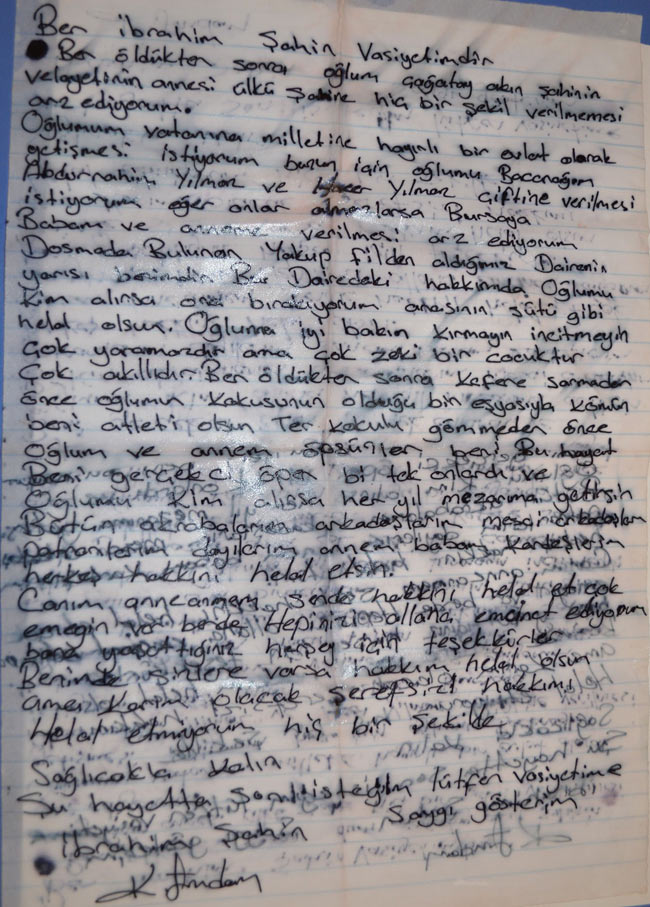 Ben ibrahim Şahin Vasiyetimdir
Ben öldükten sonra oğlum Çağatay akın Şahinin
velayetinin annesi ülkü Şahine hiç bir şekil verilmemesi
arz ediyorum.
Oğlumun vatanına milletine hayırlı bir evlat olarak
yetişmesi istiyorum bunun için oğlumu Bacanağım
Abdurrahim Yılmaz ve Yılmaz çiftine verilmesi
istiyorum eğer onlar almazlarsa Bursaya
Babam ve anneme verilmesi arz ediyorum
Bulunan Yakup filden aldığımız Dairenin
yarısı benimdir Bu Dairedeki hakkımda Oğlumu
kim alırsa ona bırakıyorum anasının sütü gibi
helal olsun. Oğluma iyi bakın kırmayın incitmeyin
Çok yaramazdır ama çok zeki bir cocuktur
Çok akıllıdır. Ben öldükten sonra kefene sarmadan
önce oğlumun kokusunun olduğu bir eşyasıyla kömün
beni atleti olsun Ter kokulu gömmeden önce
Oğlum ve annem öpsünler beni Bu hayat
Beni gerçekci öpen bi tek onlardı ve
Oğlumu kim alırsa her yıl mezarıma getirsin
Bütün akrabalarım arkadaşlarım mesai arkadaşlarım
patronlarım dayılarım annem babam kardeşlerim
herkes hakkını helal etsin.
Canım anneannem sende hakkını helal et çok
emeğin var bende Hepinizi allaha emanet ediyorum
bana yaptığınız herşey için teşekkürler
Benimde sizlere varsa hakkım helal olsun
ama Karım olacak şerefsizi hakkımı
Helal etmiyorum hiç bir şekilde
Sağlıcakla kalın
Şu hayatta son isteğim lütfen vasiyetime
saygı gösterin
ibrahim Şahin